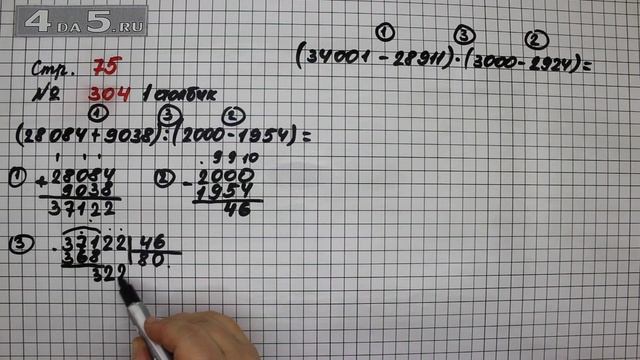 4 DA 5 .RU
Стр. 75
№ 304 1 столбик
① ③ ②
(28084+9038):(2000-1954)=
① + 28084
9038
37122
② - 2000
1954
46
. 9 9 10
③ 37122 | 46
368 | 80
322
① ③ ②
(34001-28911)·(3000-2924)=